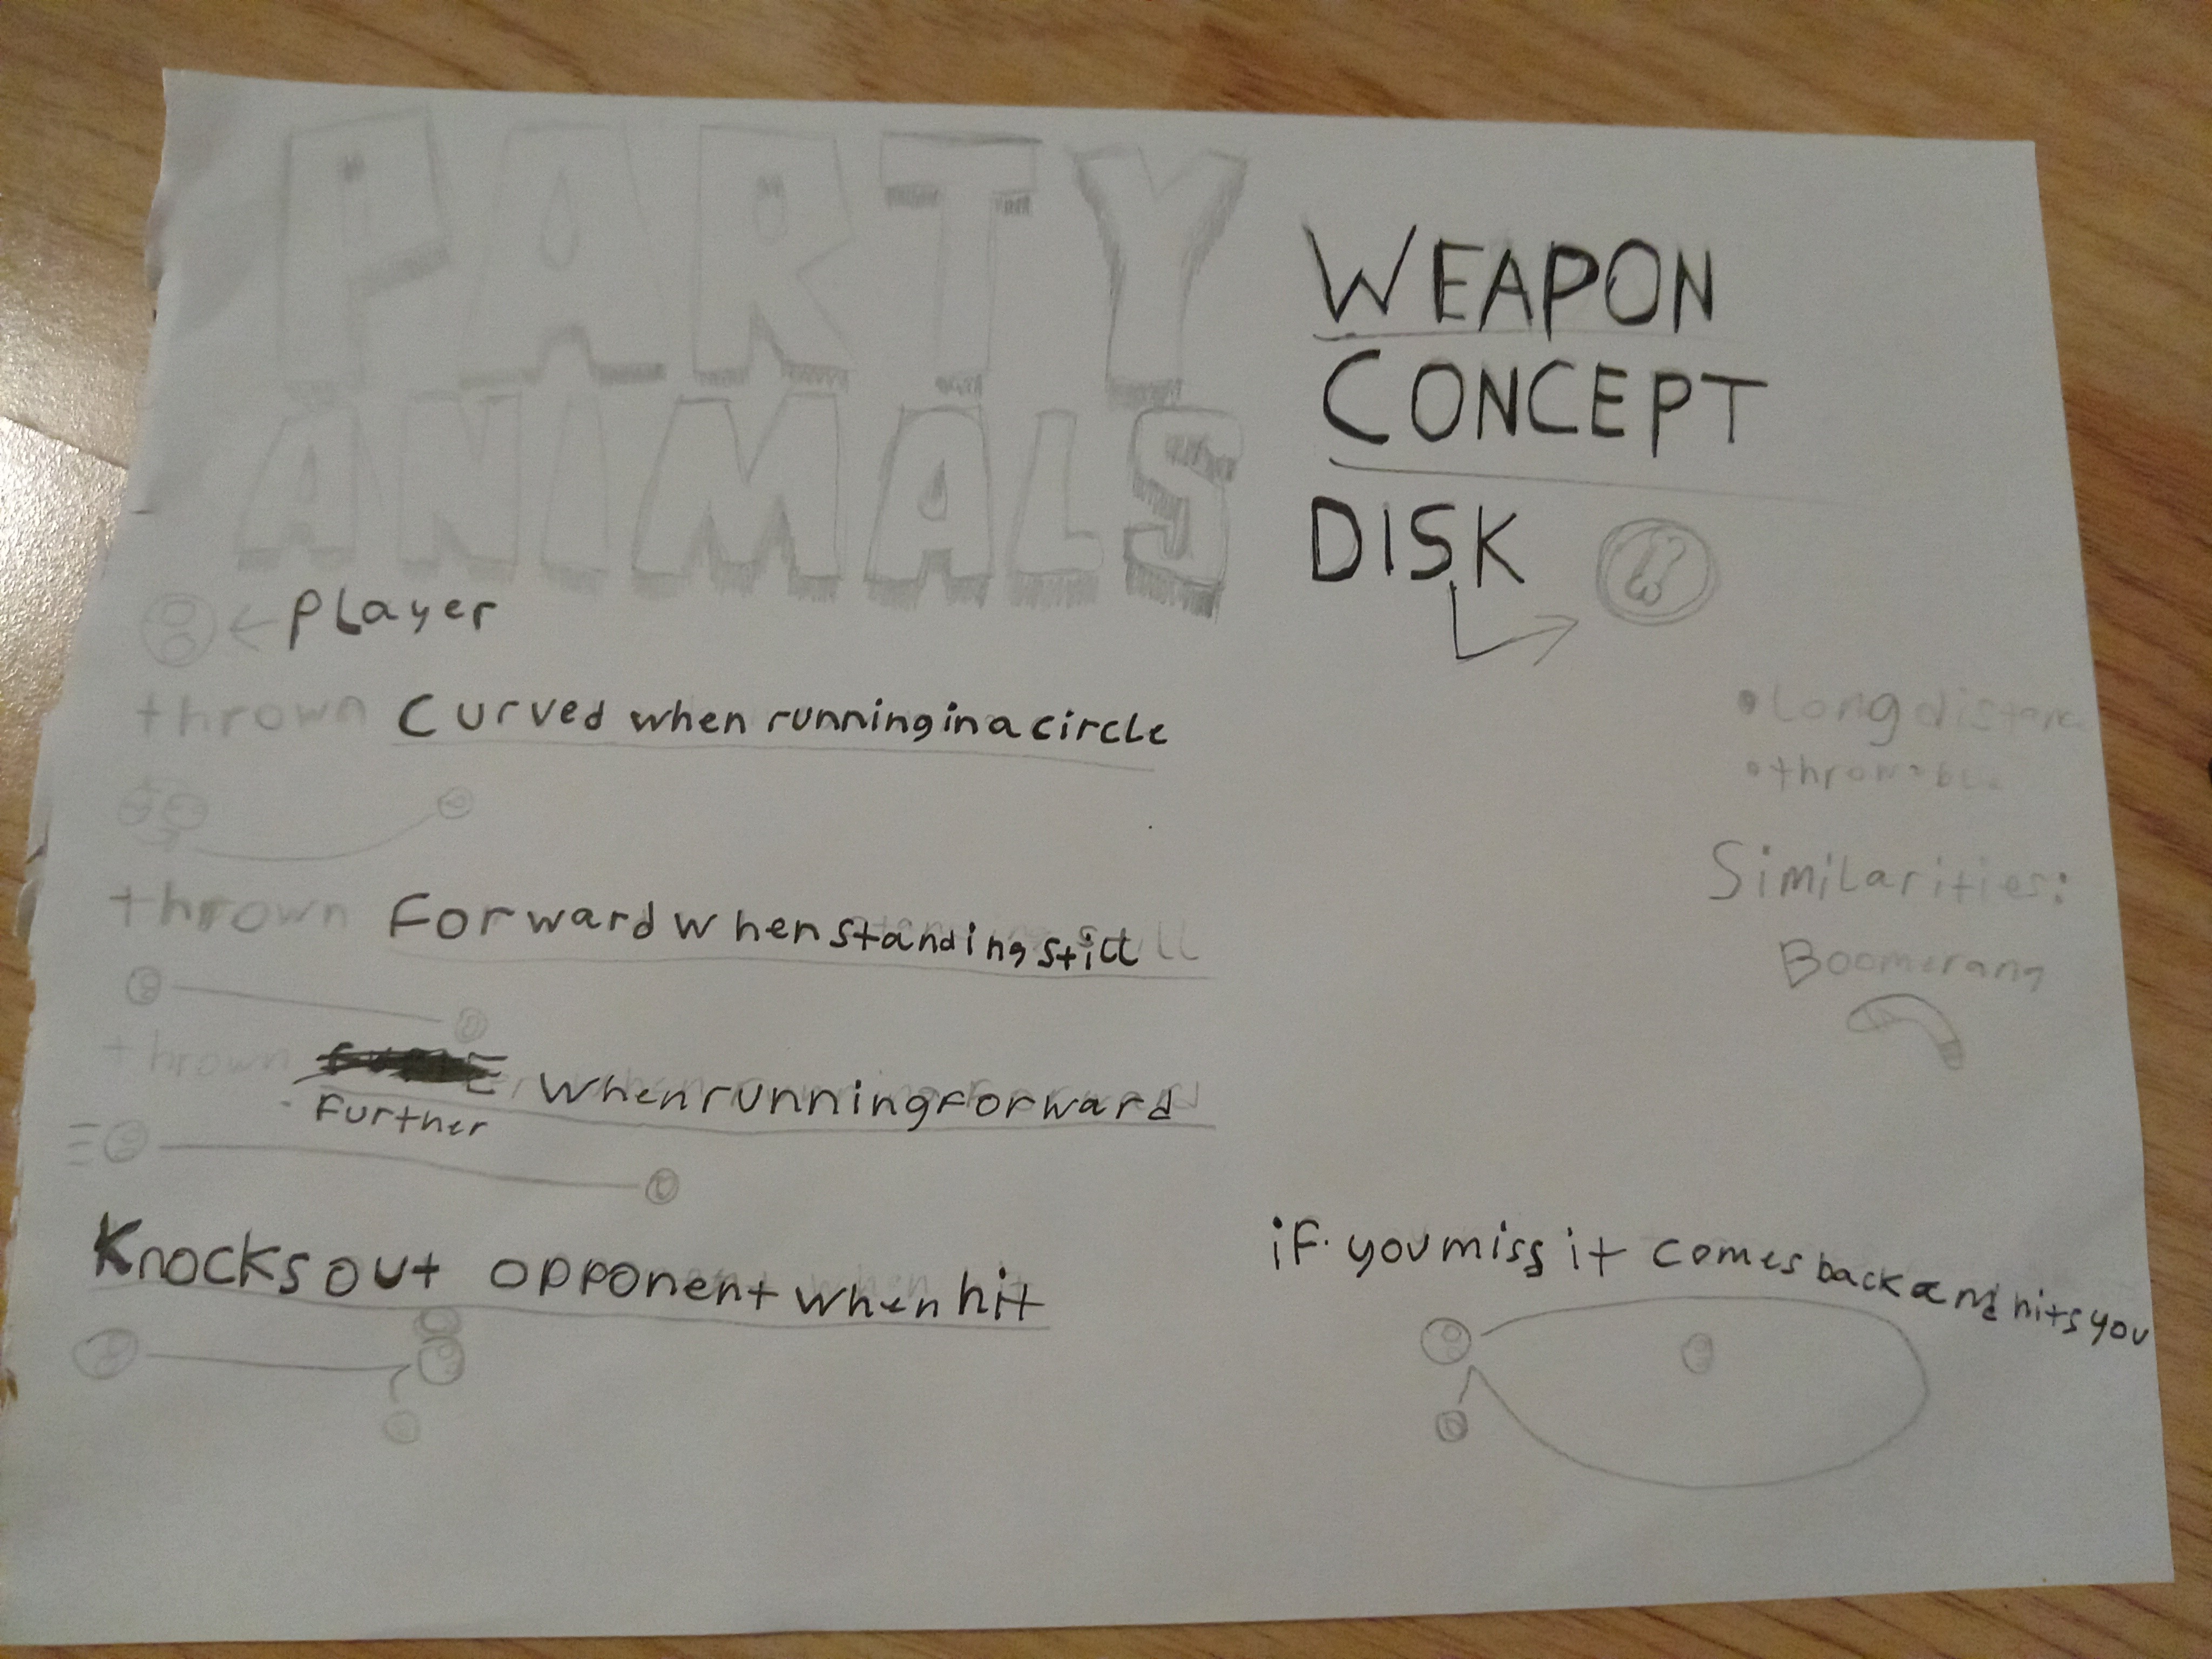 PARTY
ANIMALS
WEAPON
CONCEPT
DISK
← Player
thrown Curved when running in a circle
thrown Forward when standing still
thrown
Further when running forward
Knocks out opponent when hit
• Long distanc
• throwable
Similarities:
Boomerang
if you miss it comes back and hits you